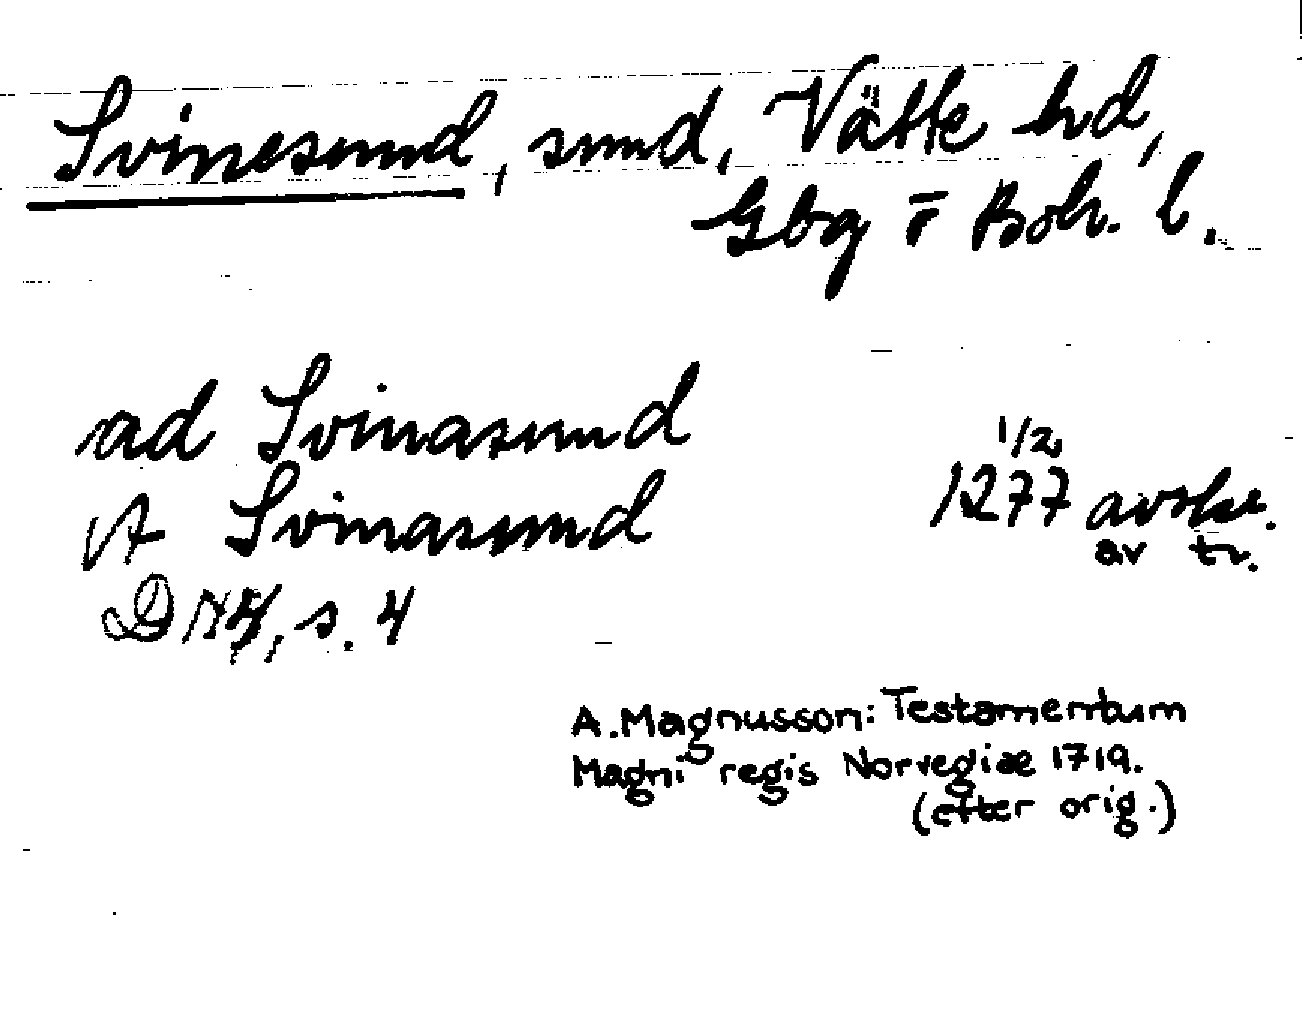 Svinesund, sund, Vätte hd,
Gbg o Boh. l.
ad Svinasund
A Svinasund
1/2
1277 avskr.
av tr.
DN 4, s. 4
A. Magnusson: Testamentum
Magni regis Norvegiæ 1719.
(efter orig.)